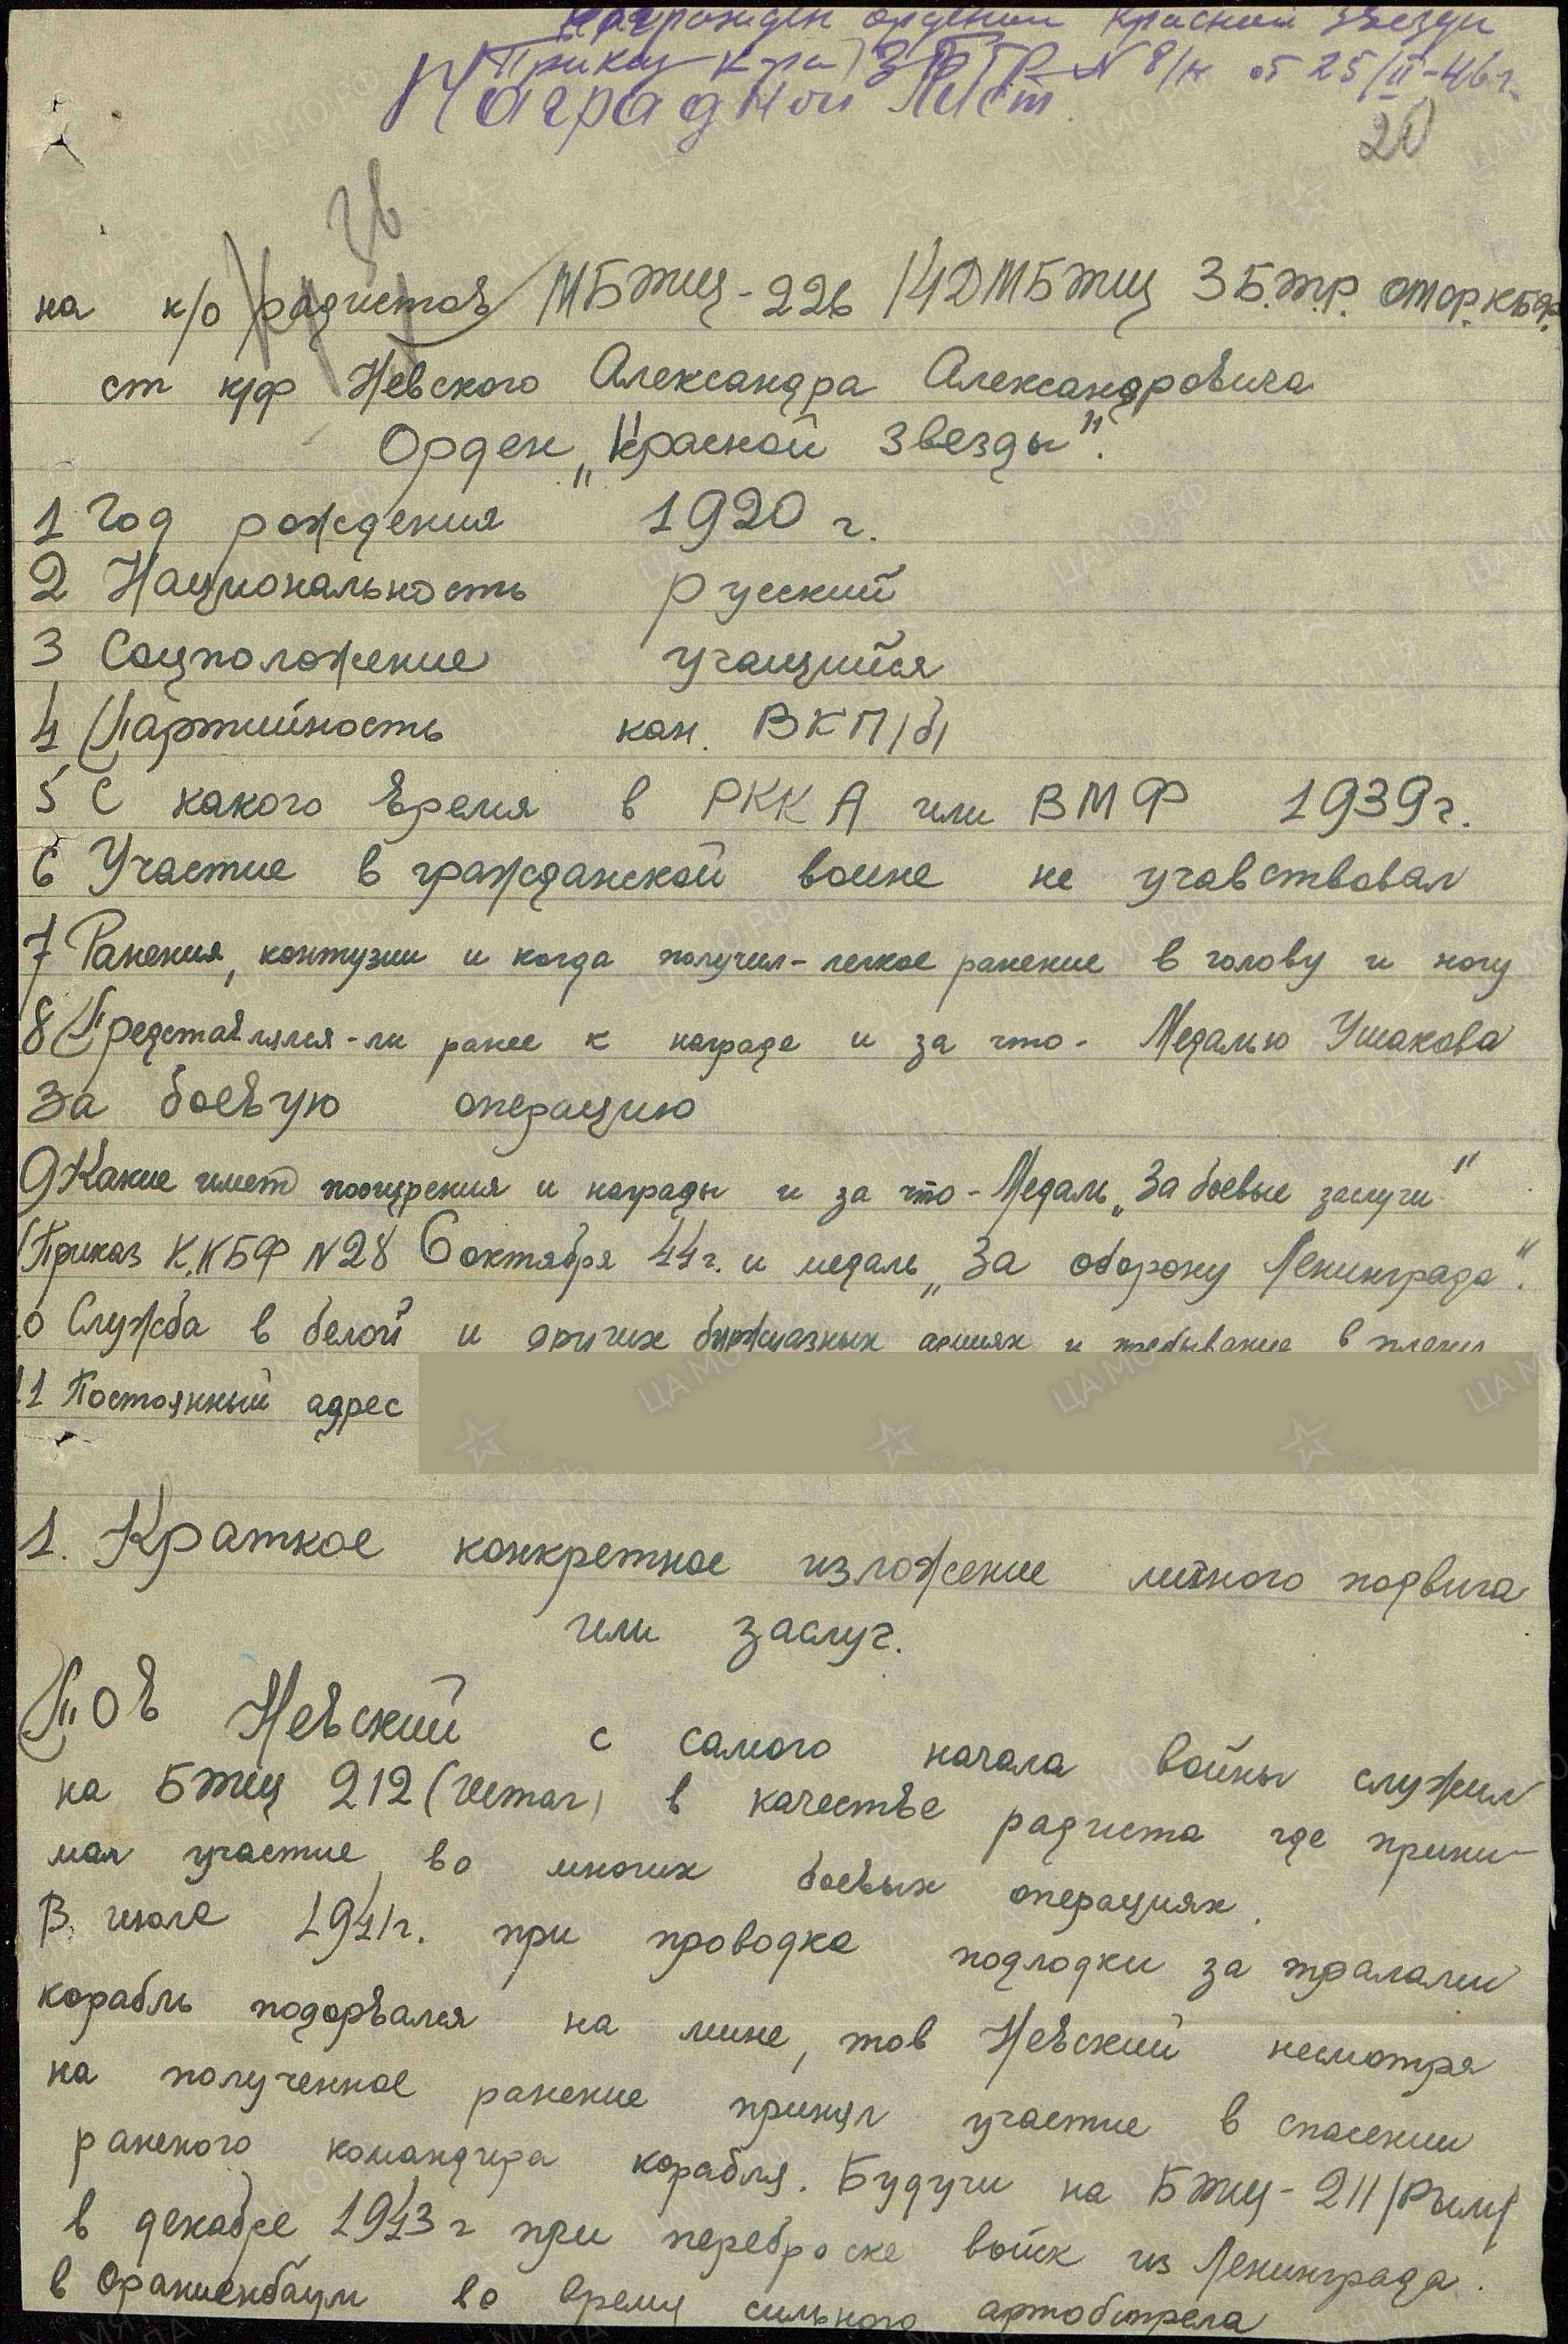 Награжден орденом Красной Звезды
Приказ к-ра 3 БТР № 8/н от 25/II-46 г.
Наградной лист
20
на к/о радистов МБТЩ-226 /4ДМБТЩ 3 Б.Т.Р.
ст к/ф Невского Александра Александровича
Орден „Красной Звезды".
1 Год рождения 1920 г.
2 Национальность русский
3 Соцположение учащийся
4 Партийность кан. ВКП/б/
5 С какого время в РККА или ВМФ 1939 г.
6 Участие в гражданской воине не учавствовал
7 Ранения, контузии и когда получил - легкое ранение в голову и ногу
8 Представлялся-ли ранее к награде и за что - Медалью Ушакова
за боевую операцию
9 Какие имет поощрения и награды и за что - Медаль „За боевые заслуги"
/Приказ К.КБФ N28 6 октября 44 г. и медаль „За оборону Ленинграда".
0 Служба в белой и других буржуазных армиях и пребывание в плену
11 Постоянный адрес
1. Краткое конкретное изложение личного подвига
или заслуг.
Тов Невский с самого начала войны служил
на БТЩ 212 (Штаг) в качестве радиста где прини-
мал участие во многих боевых операциях.
В июле 1941 г. при проводке подлодки за тралами
корабль подорвался на мине, тов Невский несмотря
на полученное ранение принял участие в спасении
раненого командира корабля. Будучи на БТЩ-211 /Рым/
в декабре 1943 г при переброске войск из Ленинграда
в Ораниенбаум во время сильного артобстрела